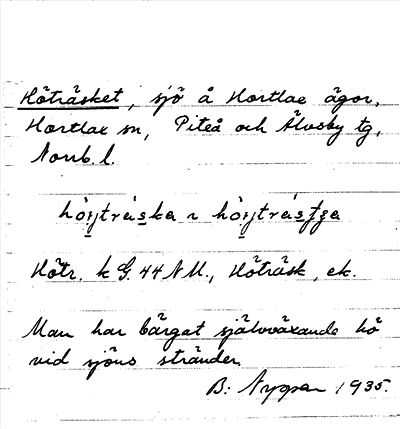 Höträsket, sjö å Hortlax ägor,
Hortlax sn, Piteå och Älvsby tg,
Norrb. l.
hö̀i̯träska ~ hö̀i̯träsʃʒa
Hötr. k G. 44 NU., Höträsk, ek.
Man har bärgat självväxande hö
vid sjöns stränder.
B: Nygren 1935.